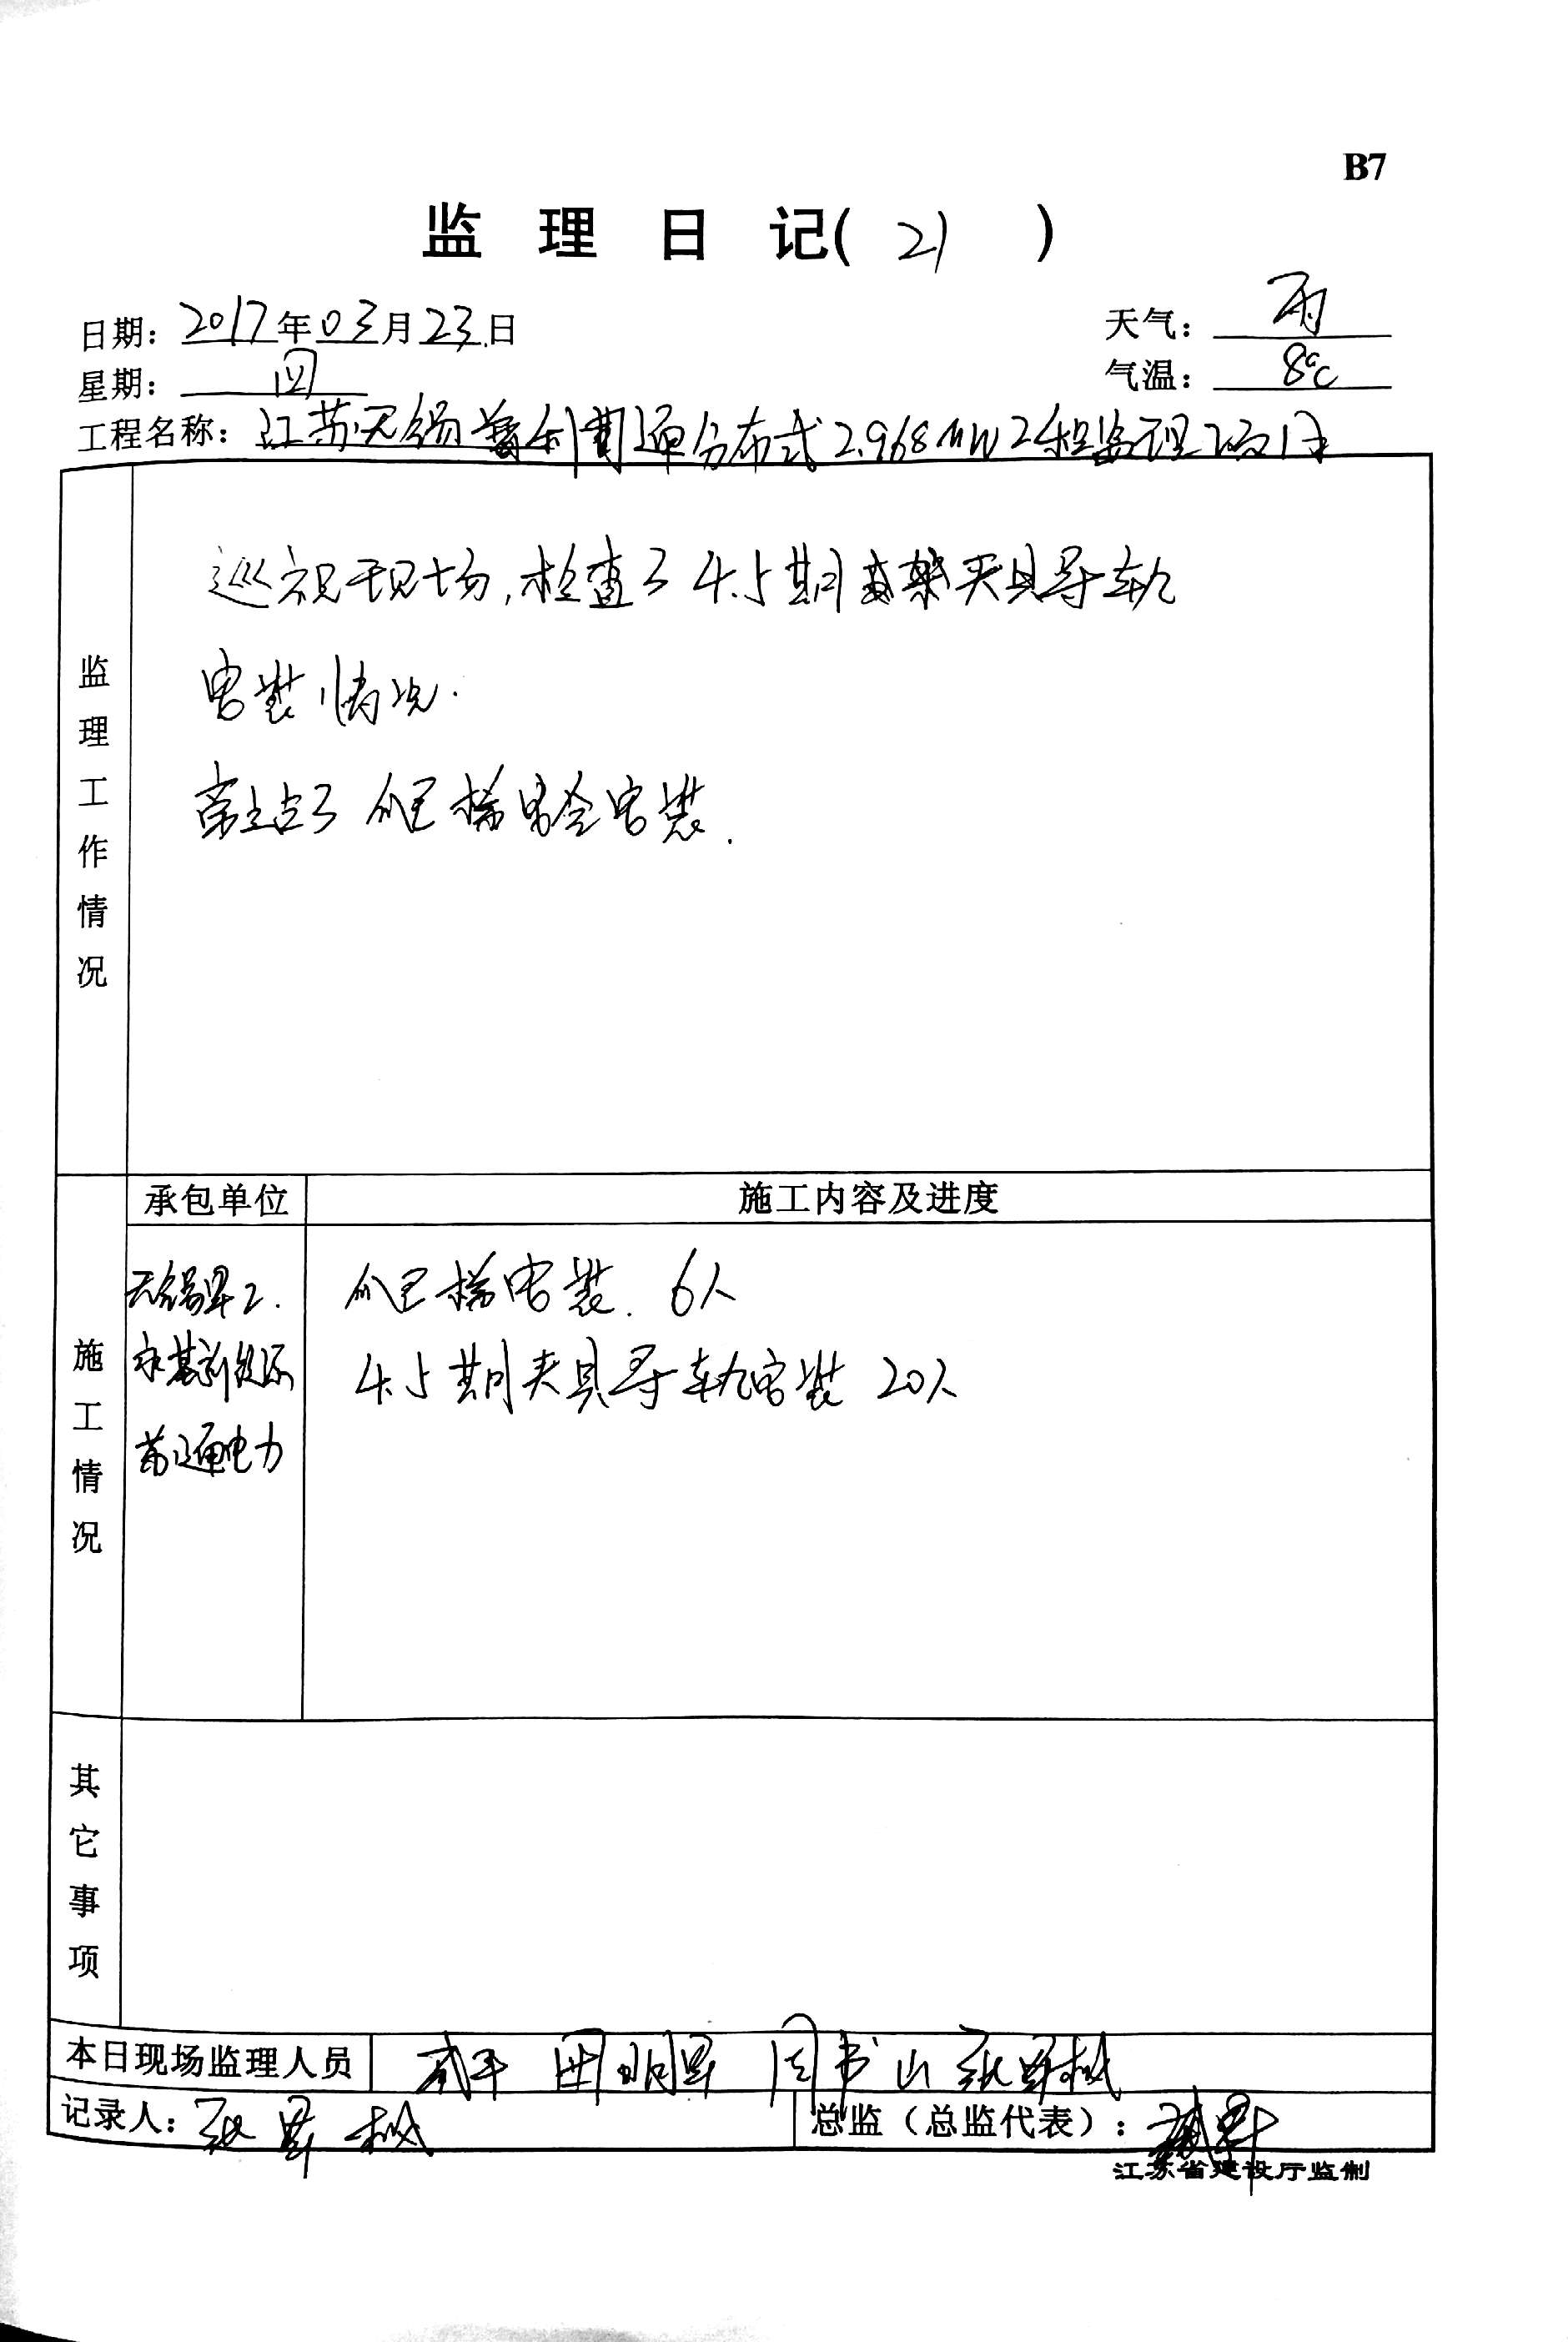 B7
监 理 日 记( 21 )
日期: 2017年03月23日
天气: 雨
星期: 四
气温: 8℃
工程名称: 江苏无锡普利司通分布式2.968MW工程监理项目
监理工作情况
巡视现场,检查了4.5期支架夹具导轨
安装情况.
旁站了爬梯安全安装.
承包单位
施工内容及进度
施工情况
爬梯安装. 6人
4.5期夹具导轨安装 20人
电力
其它事项
本日现场监理人员
周书山
记录人:
总监(总监代表):
江苏省建设厅监制